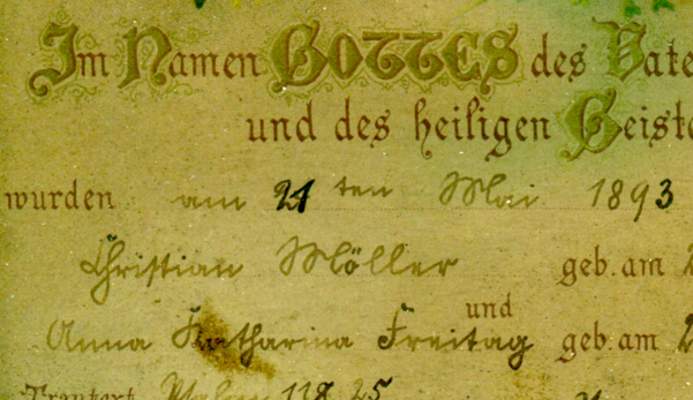 Im Namen GOTTES des Vate
und des heiligen Geiste
wurden am 21 ten Mai 1893
Christian Möller geb. am 2
und
Anna Katharina Freitag geb. am 2
Trautext Psalm 118, 25